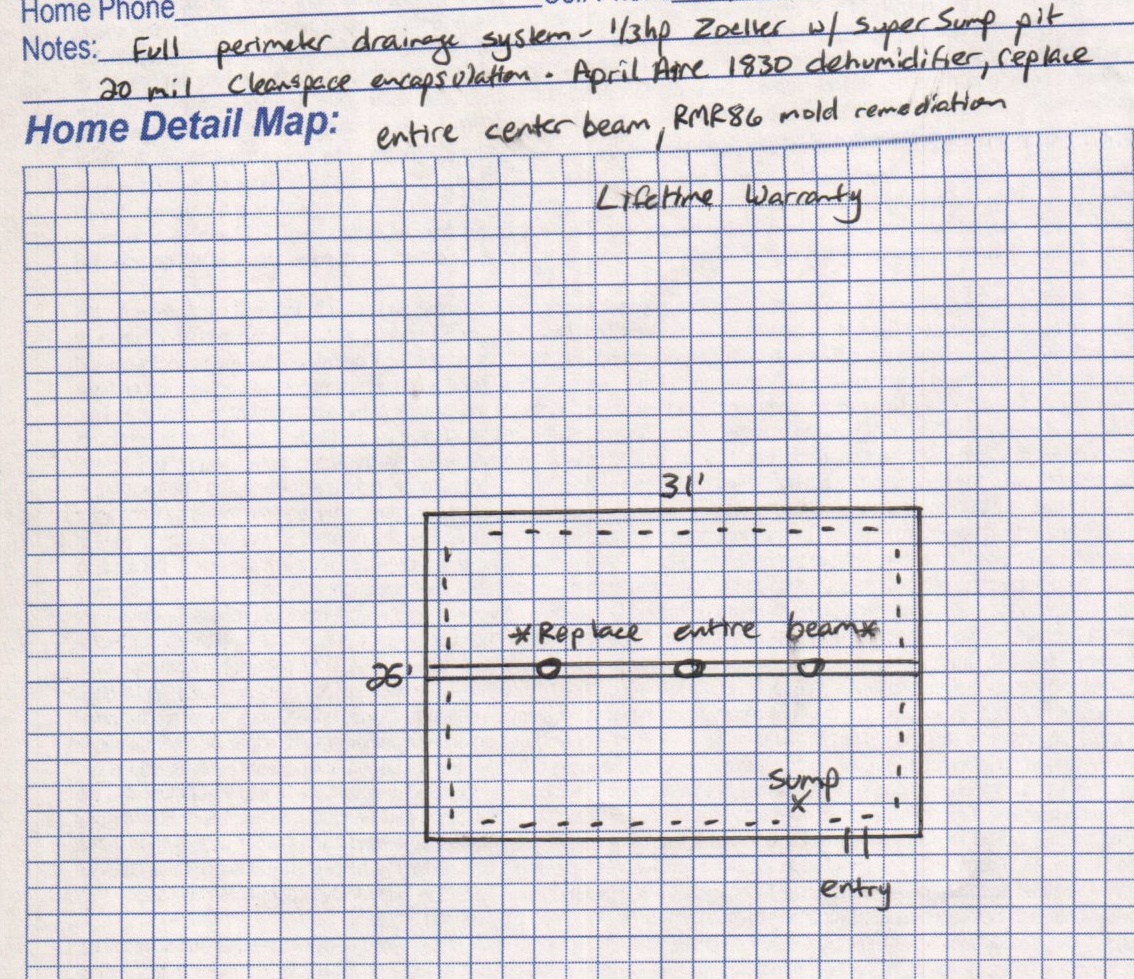 Home Phone
Notes: Full perimeter drainage system - 1/3hp Zoeller w/ Super Sump pit
20 mil Cleanspace encapsulation. April Aire 1830 dehumidifier, replace
Home Detail Map: entire center beam, RMR86 mold remediation
Lifetime Warranty
31'
*Replace entire beam*
26'
sump
x
entry